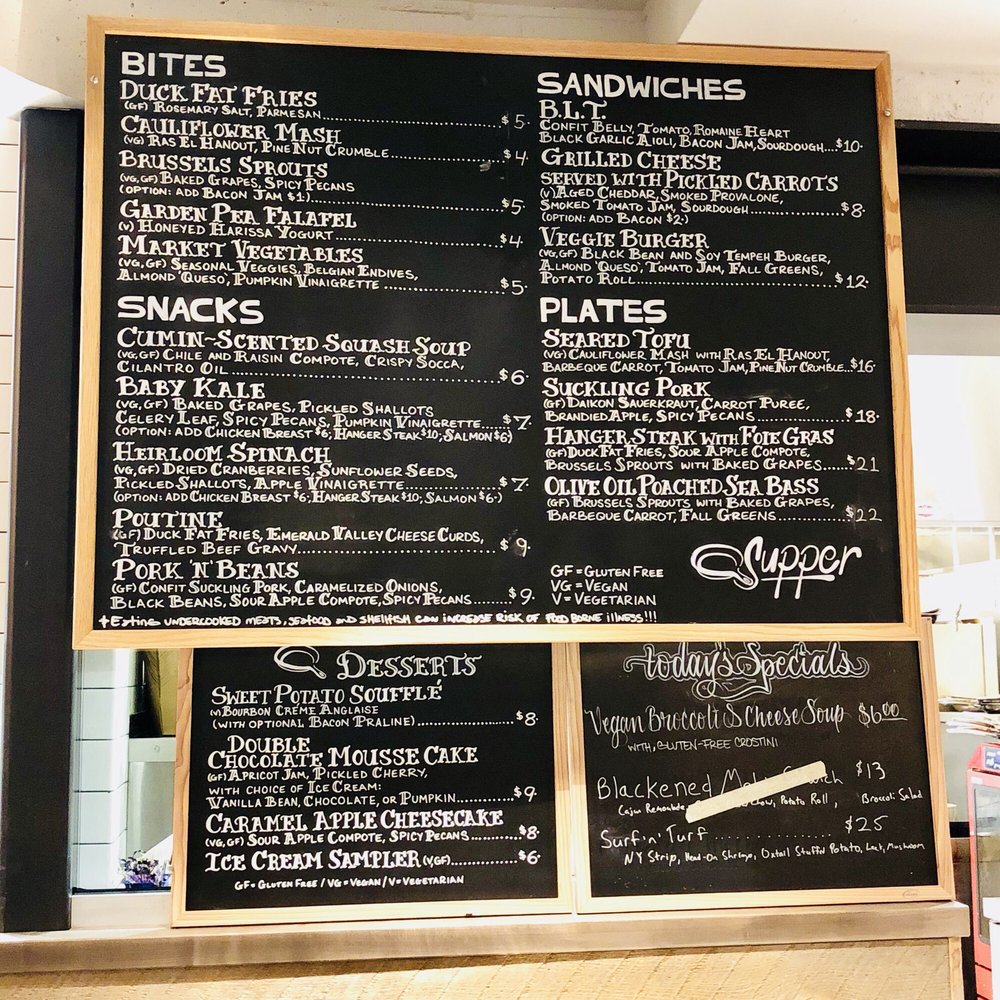 BITES
DUCK FAT FRIES
(GF) ROSEMARY SALT, PARMESAN.....$5.
CAULIFLOWER MASH
(VG) RAS EL HANOUT, PINE NUT CRUMBLE.....$4
BRUSSELS SPROUTS
(VG,GF) BAKED GRAPES, SPICY PECANS
(OPTION: ADD BACON JAM $1.).....$5
GARDEN PEA FALAFEL
(V) HONEYED HARISSA YOGURT.....$4
MARKET VEGETABLES
(VG,GF) SEASONAL VEGGIES, BELGIAN ENDIVES,
ALMOND 'QUESO', PUMPKIN VINAIGRETTE.....$5.
SNACKS
CUMIN-SCENTED SQUASH SOUP
(VG,GF) CHILE AND RAISIN COMPOTE, CRISPY SOCCA,
CILANTRO OIL.....$6.
BABY KALE
(VG,GF) BAKED GRAPES, PICKLED SHALLOTS
CELERY LEAF, SPICY PECANS, PUMPKIN VINAIGRETTE.....$7.
(OPTION: ADD CHICKEN BREAST $6; HANGER STEAK $10; SALMON $6)
HEIRLOOM SPINACH
(VG,GF) DRIED CRANBERRIES, SUNFLOWER SEEDS,
PICKLED SHALLOTS, APPLE VINAIGRETTE.....$7.
(OPTION: ADD CHICKEN BREAST $6; HANGER STEAK $10; SALMON $6.)
POUTINE
(GF) DUCK FAT FRIES, EMERALD VALLEY CHEESE CURDS,
TRUFFLED BEEF GRAVY.....$9.
PORK 'N' BEANS
(GF) CONFIT SUCKLING PORK, CARAMELIZED ONIONS,
BLACK BEANS, SOUR APPLE COMPOTE, SPICY PECANS.....$9.
SANDWICHES
B.L.T.
CONFIT BELLY, TOMATO, ROMAINE HEART
BLACK GARLIC AIOLI, BACON JAM, SOURDOUGH...$10.
GRILLED CHEESE
SERVED WITH PICKLED CARROTS
(V) AGED CHEDDAR, SMOKED PROVALONE,
SMOKED TOMATO JAM, SOURDOUGH.....$8.
(OPTION: ADD BACON $2.)
VEGGIE BURGER
(VG,GF) BLACK BEAN AND SOY TEMPEH BURGER,
ALMOND 'QUESO', TOMATO JAM, FALL GREENS,
POTATO ROLL.....$12.
PLATES
SEARED TOFU
(VG) CAULIFLOWER MASH WITH RAS EL HANOUT,
BARBEQUE CARROT, TOMATO JAM, PINE NUT CRUMBLE..$16.
SUCKLING PORK
(GF) DAIKON SAUERKRAUT, CARROT PUREE,
BRANDIED APPLE, SPICY PECANS.....$18.
HANGER STEAK WITH FOIE GRAS
(GF) DUCK FAT FRIES, SOUR APPLE COMPOTE,
BRUSSELS SPROUTS WITH BAKED GRAPES.....$21
OLIVE OIL POACHED SEA BASS
(GF) BRUSSELS SPROUTS WITH BAKED GRAPES,
BARBEQUE CARROT, FALL GREENS.....$22
GF = GLUTEN FREE
VG = VEGAN
V = VEGETARIAN
Supper
+ EATING UNDERCOOKED MEATS, SEAFOOD AND SHELLFISH CAN INCREASE RISK OF FOOD BORNE ILLNESS!!!
DESSERTS
SWEET POTATO SOUFFLÉ
(V) BOURBON CRÈME ANGLAISE
(WITH OPTIONAL BACON PRALINE).....$8.
DOUBLE
CHOCOLATE MOUSSE CAKE
(GF) APRICOT JAM, PICKLED CHERRY,
WITH CHOICE OF ICE CREAM:
VANILLA BEAN, CHOCOLATE, OR PUMPKIN.....$9.
CARAMEL APPLE CHEESECAKE
(VG,GF) SOUR APPLE COMPOTE, SPICY PECANS.....$8.
ICE CREAM SAMPLER (V,GF).....$6.
GF = GLUTEN FREE / VG = VEGAN / V = VEGETARIAN
today's Specials
Vegan Broccoli & Cheese Soup $6.00
WITH, GLUTEN-FREE CROSTINI
Blackened $13
Cajun Remoulade Potato Roll, Broccoli Salad
Surf 'n' Turf.....$25
NY Strip, Head-On Shrimp, Oxtail Stuff'd Potato, Leek, Mushroom